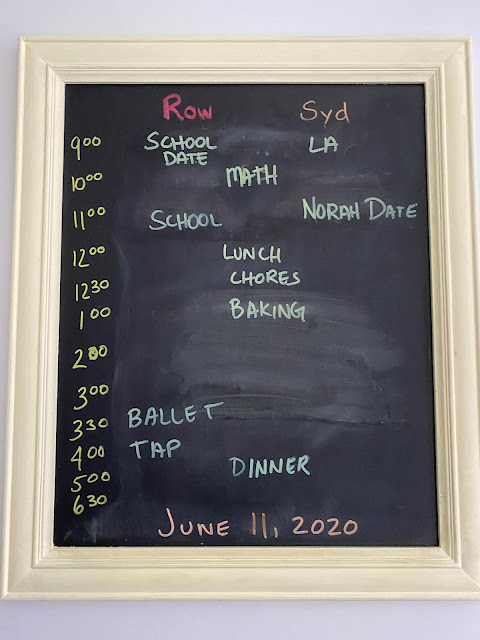 Row Syd
9:00 SCHOOL DATE LA
10:00 MATH
11:00 SCHOOL NORAH DATE
12:00 LUNCH
12:30 CHORES
1:00 BAKING
2:00
3:00
3:30 BALLET
4:00 TAP
5:00 DINNER
6:30
JUNE 11, 2020